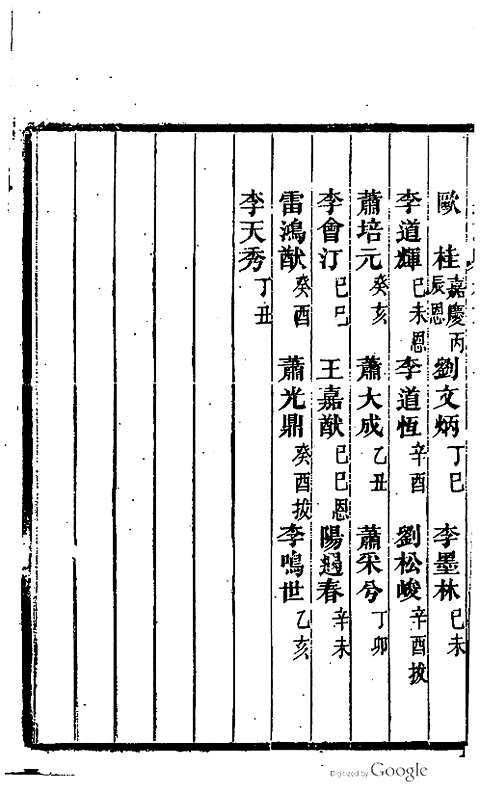 歐桂嘉慶丙辰恩　劉文炳丁巳　李墨林己未
李道輝己未恩　李道恆辛酉　劉松峻辛酉拔
蕭培元癸亥　蕭大成乙丑　蕭采兮丁卯
李會汀己巳　王嘉猷己巳恩　陽過春辛未
雷鴻猷癸酉　蕭光鼎癸酉拔　李鳴世乙亥
李天秀丁丑
Digitized by Google